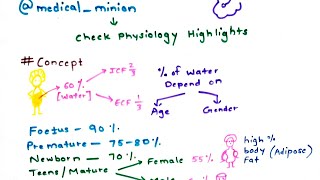 @medical_minion
Check Physiology Highlights
# Concept
ICF 2/3
60%
[water]
ECF 1/3
% of water
Depend on
Age
Gender
Foetus - 90%
Premature - 75-80%
Newborn - 70%
Teens/Mature
Female 55%
high %
body (Adipose)
Fat